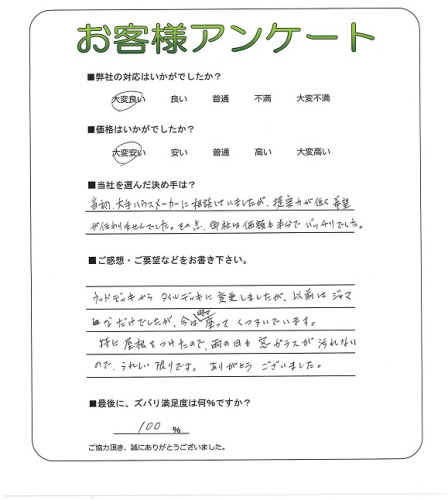 お客様アンケート
■弊社の対応はいかがでしたか？
大変良い 良い 普通 不満 大変不満
■価格はいかがでしたか？
大変安い 安い 普通 高い 大変高い
■当社を選んだ決め手は？
当初、大手ハウスメーカーに相談していましたが、提案力が低く希望
が伝わりませんでした。その点、御社は価額も半分でバッチリでした。
■ご感想・ご要望などをお書き下さい。
ウッドデッキからタイルデッキに変更しましたが、以前はジャマ
なだけでしたが、今は座ってくつろいでいます。
特に屋根をつけたので、雨の日も窓ガラスが汚れない
ので、うれしい限りです。ありがとうございました。
■最後に、ズバリ満足度は何％ですか？
100 ％
ご協力頂き、誠にありがとうございました。